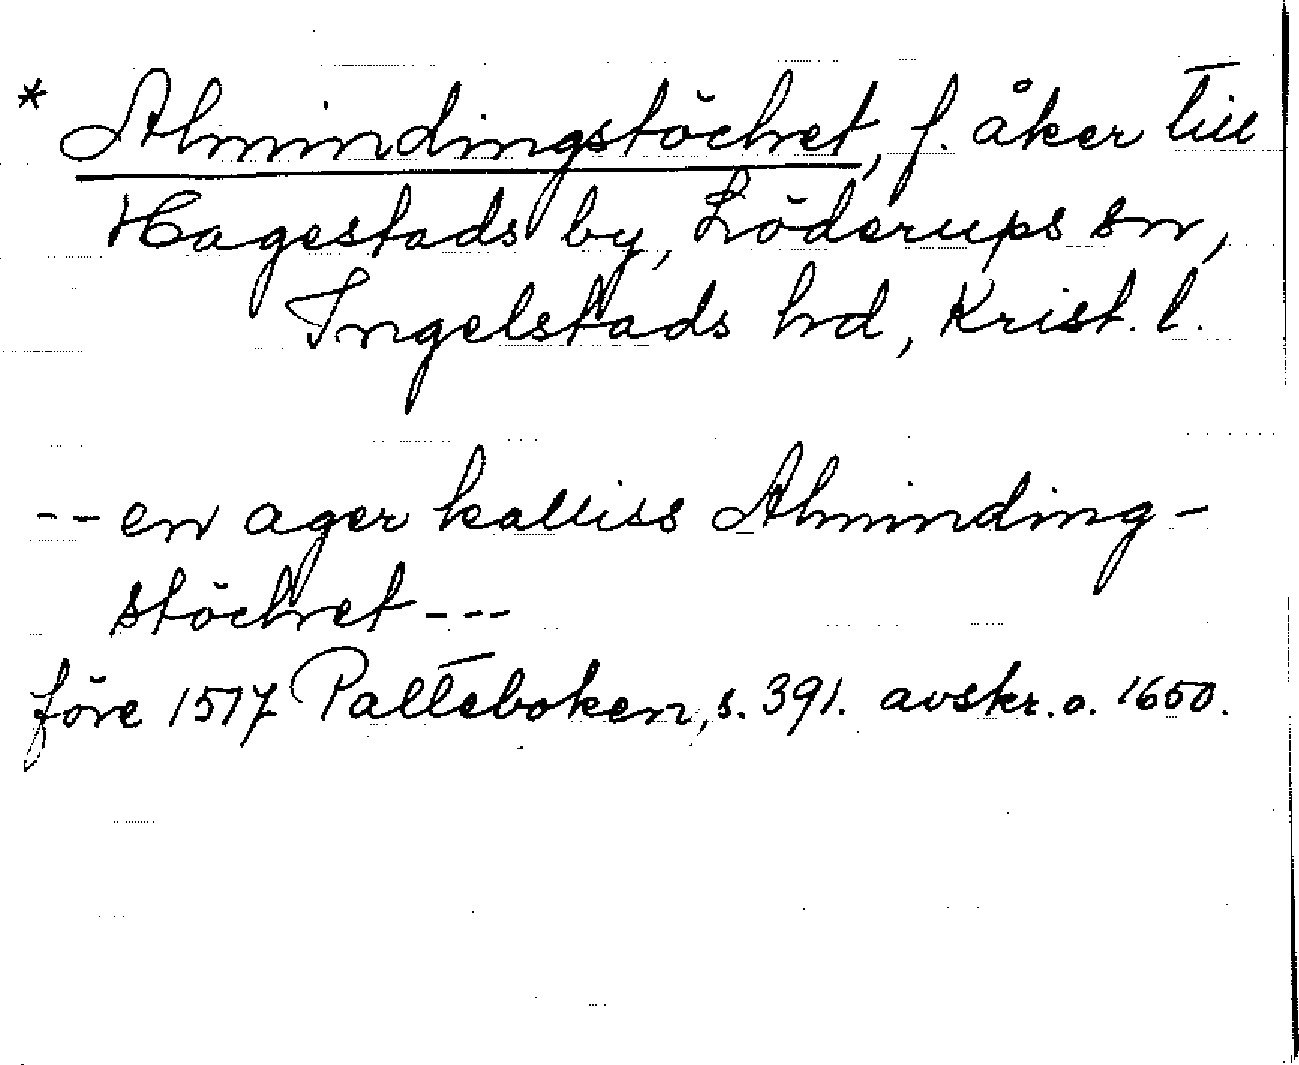 * Almindingstöchet, f. åker till
Hagestads by, Löderups sn,
Ingelstads hd, Krist. l.
-- en ager kalliss Alminding-
stöchet ---
före 1517 Palteboken, s. 391. avskr. o. 1650.